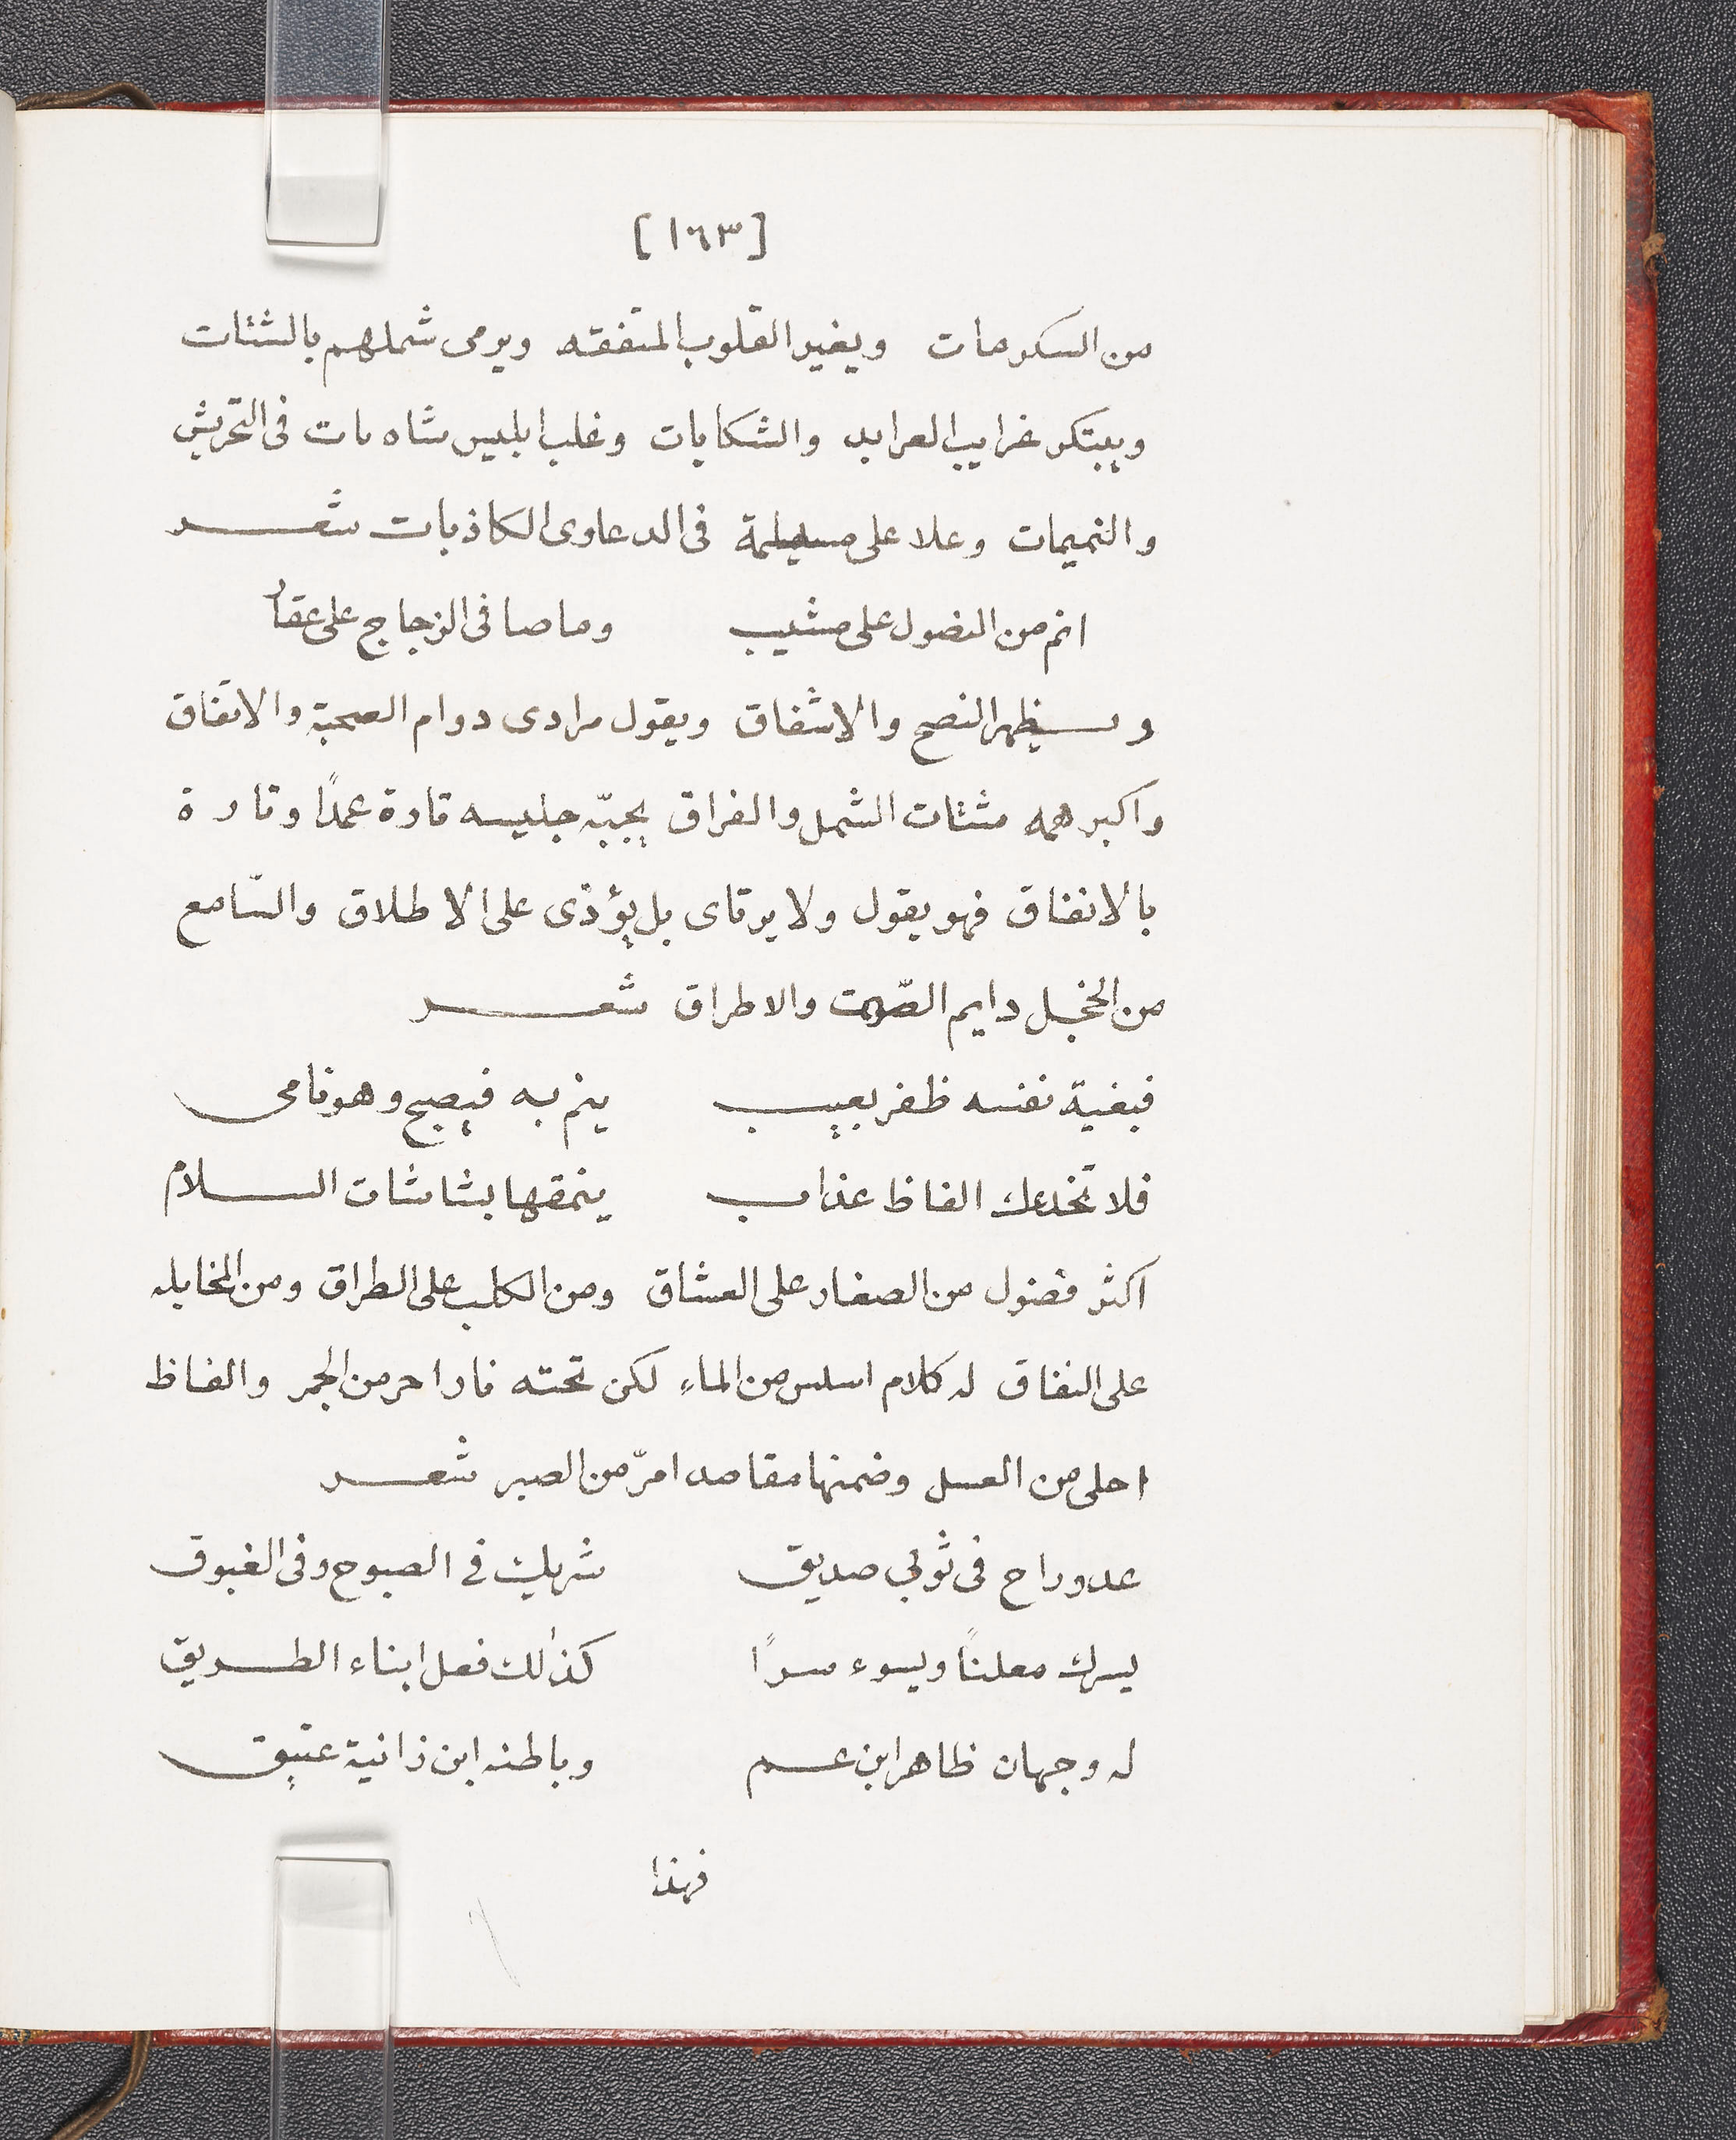 [١٦٣]
من السكرمات ويغير القلوب المتفقه ويرمى شملهم بالشتات
ويبتكر غرايب العرابد والشكايات وغلب ابليس شاه مات فى التحريش
والنميمات وعلا على مسيلمة فى الدعاوى الكاذبات شعر
انم من النصول على مشيب وما صا فى الزجاج على عقار
ويظهر النصح والاشفاق ويقول مرادى دوام الصحبة والاتفاق
واكبر همه شتات الشمل والفراق يجبّه جليسه تارة عمدًا وتارة
بالاتفاق فهو يقول ولا يرتاى بل يؤذى على الاطلاق والسّامع
من الخجل دايم الصّمت والاطراق شعر
فبغية نفسه ظفر بعيب ينم به فيصبح وهو نامى
فلا تخدعك الفاظ عذاب ينمقها بشاشات السلام
اكثر فضول من الصغار على العشاق ومن الكلب على الطراق ومن المخايله
على النفاق له كلام اسلس من الماء لكن تحته نار احر من الجمر والفاظ
احلى من العسل وضمنها مقاصد امرّ من الصبر شعر
عدو راح فى ثوبى صديق شريك في الصبوح وفى الغبوق
يسرك معلنًا ويسوء سرًا كذلك فعل ابناء الطريق
له وجهان ظاهر ابن عم وباطنه ابن زانية عتيق
فهذا